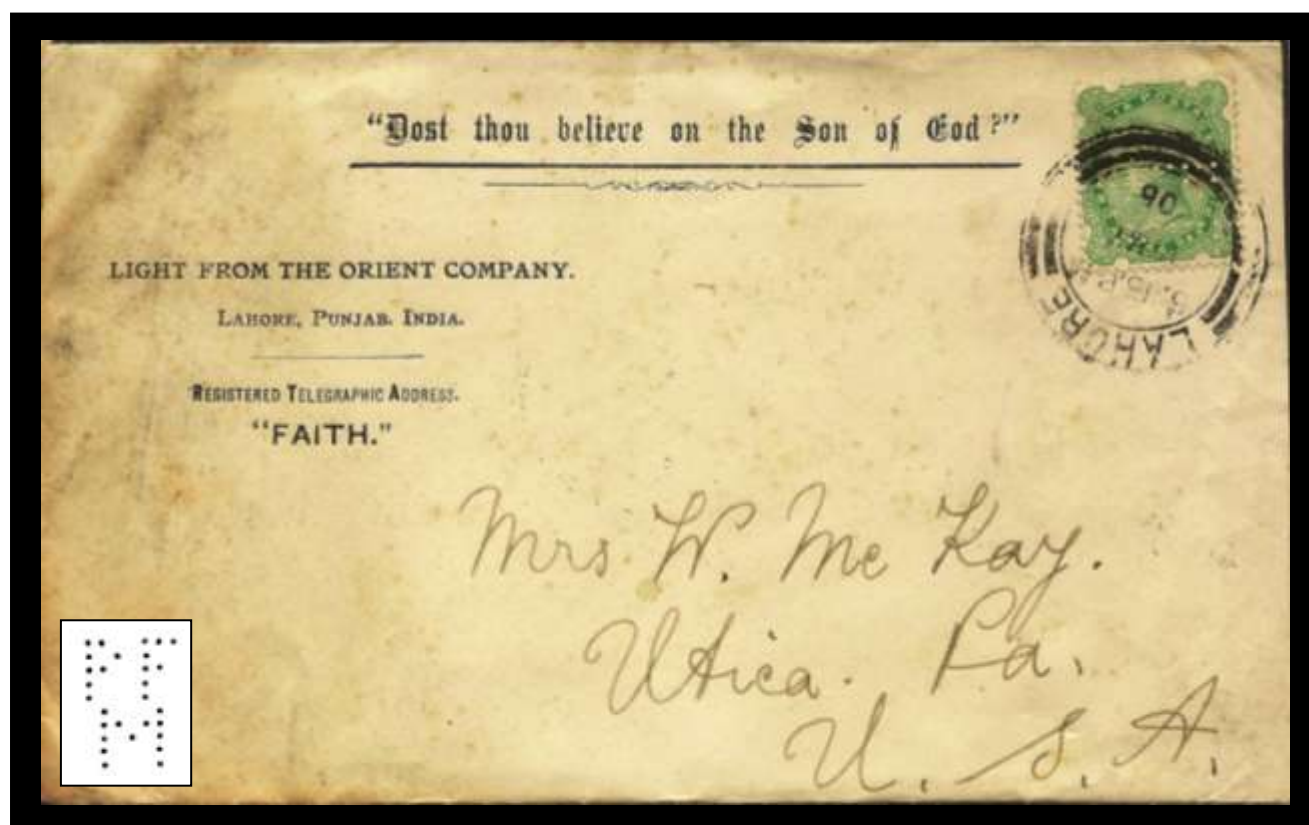 "Dost thou believe on the Son of God?"
LIGHT FROM THE ORIENT COMPANY.
LAHORE, PUNJAB. INDIA.
REGISTERED TELEGRAPHIC ADDRESS.
"FAITH."
LAHORE
Mrs W. Mc Kay.
Utica. Pa.
U. S. A.
PF
M